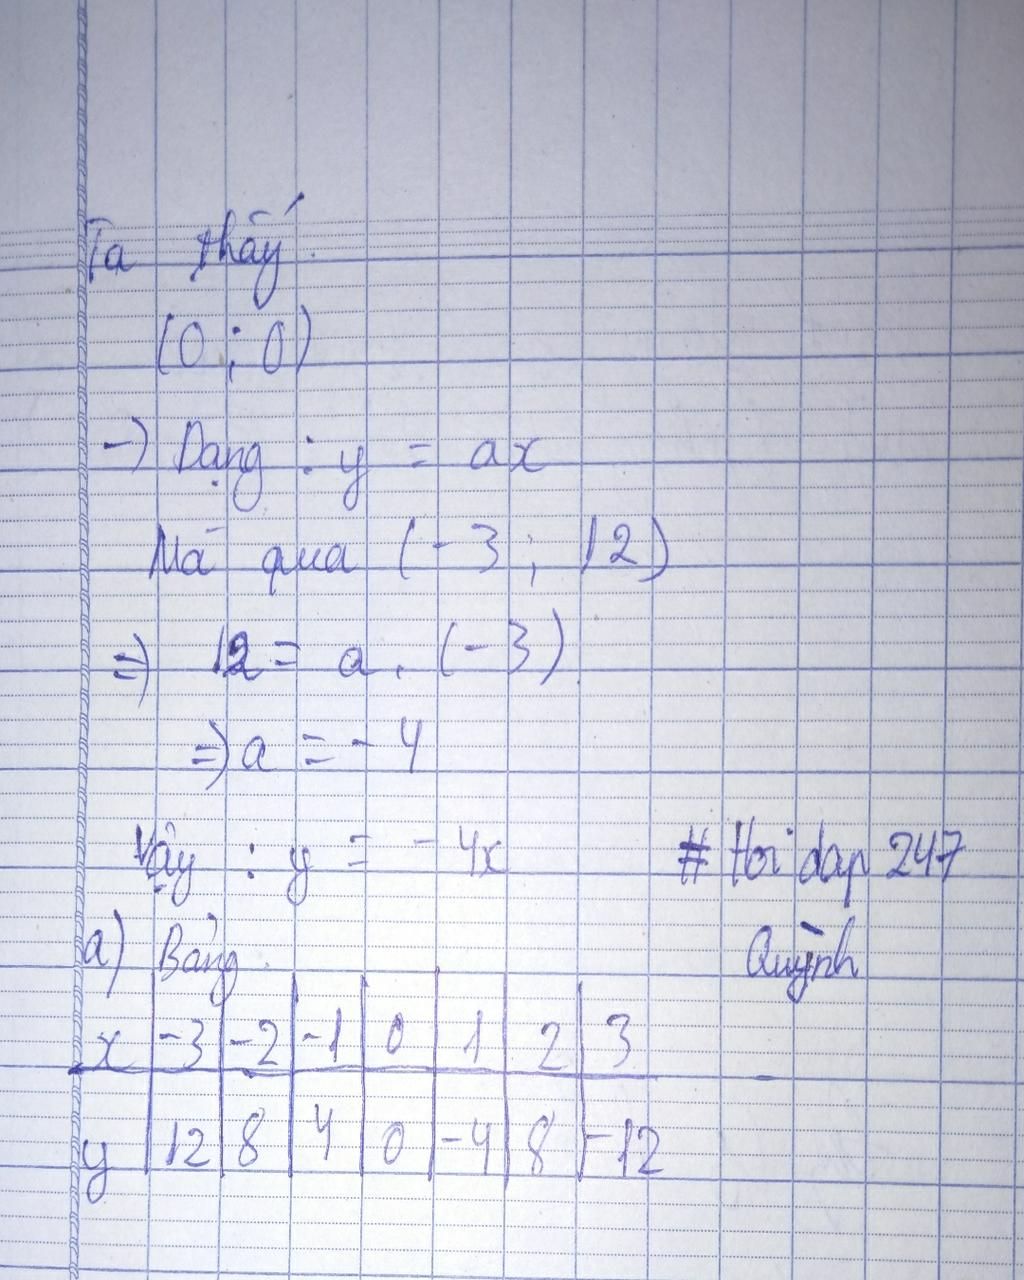 Ta thấy :
(0 ; 0)
→ Dạng : y = ax
Mà qua (-3 ; 12)
=> 12 = a . (-3)
=> a = -4
Vậy : y = -4x
# Hoi dap 247
Quỳnh
a) Bảng
x -3 -2 -1 0 1 2 3
y 12 8 4 0 -4 8 -12